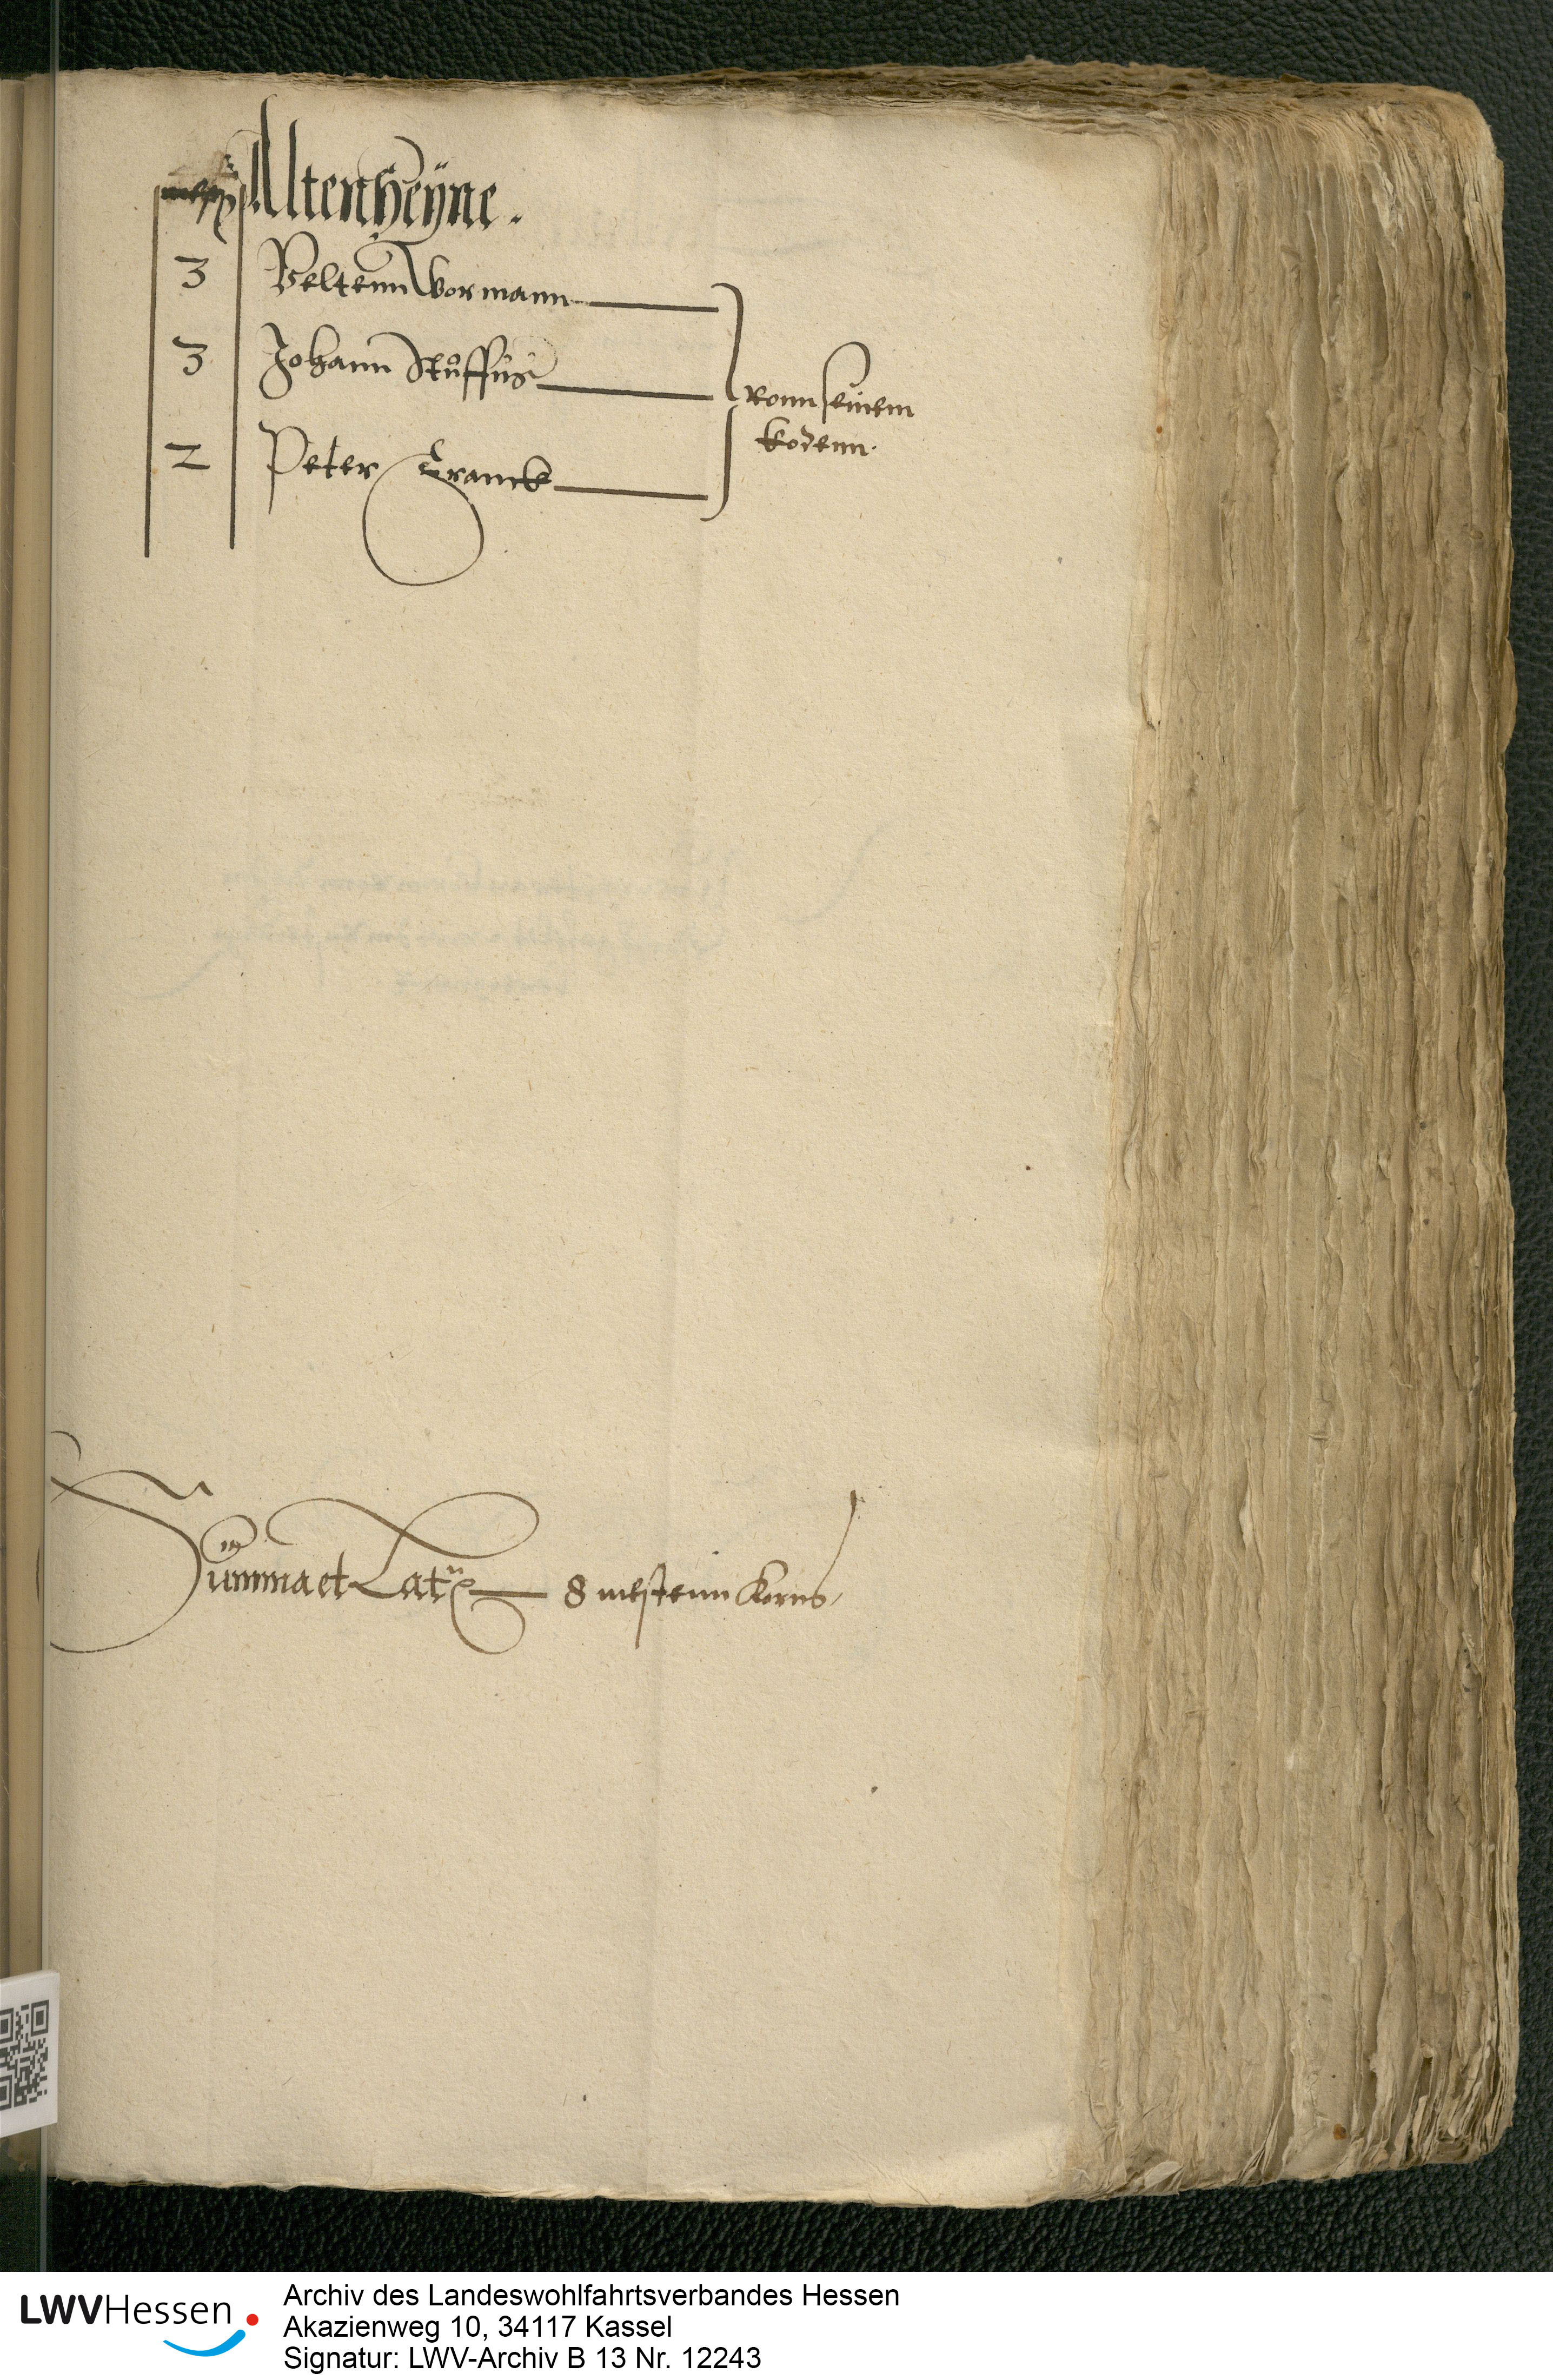 Altenheÿne.
3 Veltenn Vormann
3 Johann Stuffus
2 Peter Franck
vonn seinem
rodenn.
Summa et Lat
8 mestenn Korns
LWVHessen
Archiv des Landeswohlfahrtsverbandes Hessen
Akazienweg 10, 34117 Kassel
Signatur: LWV-Archiv B 13 Nr. 12243